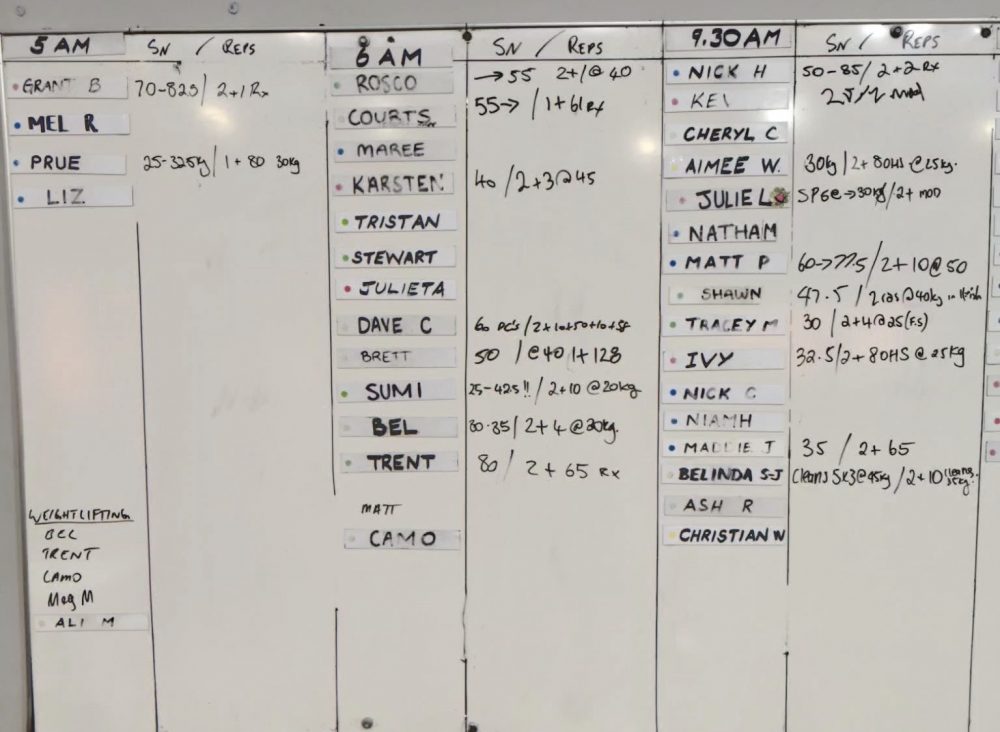 5 AM SN / REPS
GRANT B 70-825 / 2+1 Rx
MEL R
PRUE 25-325kg / 1+80 30kg
LIZ
WEIGHTLIFTING
BEL
TRENT
CAMO
Meg M
ALI M
6 AM SN / REPS
ROSCO →55 2+1@40
COURTS 55→ / 1+61Rx
MAREE
KARSTEN 40 / 2+3@45
TRISTAN
STEWART
JULIETA
DAVE C 60 PC's / 2+10+50+10+
BRETT 50 / @40 1+128
SUMI 25-425!! / 2+10 @20kg
BEL 30-35 / 2+4 @20kg.
TRENT 80 / 2+65 Rx
MATT
CAMO
9.30AM SN / REPS
NICK H 50-85 / 2+2 Rx
KEV
CHERYL C
AIMEE W. 30kg / 2+80HS @25kg.
JULIE L →30kg / 2+ MOD
NATHAM
MATT P 60→77.5 / 2+10@50
SHAWN 47.5 / @40kg in
TRACEY M 30 / 2+4@25(F.S)
IVY 32.5 / 2+80HS @25kg
NICK C
NIAMH
MADDIE J 35 / 2+65
BELINDA S-J Cleans 5x3@45kg / 2+10 cleans 35kg.
ASH R
CHRISTIAN W